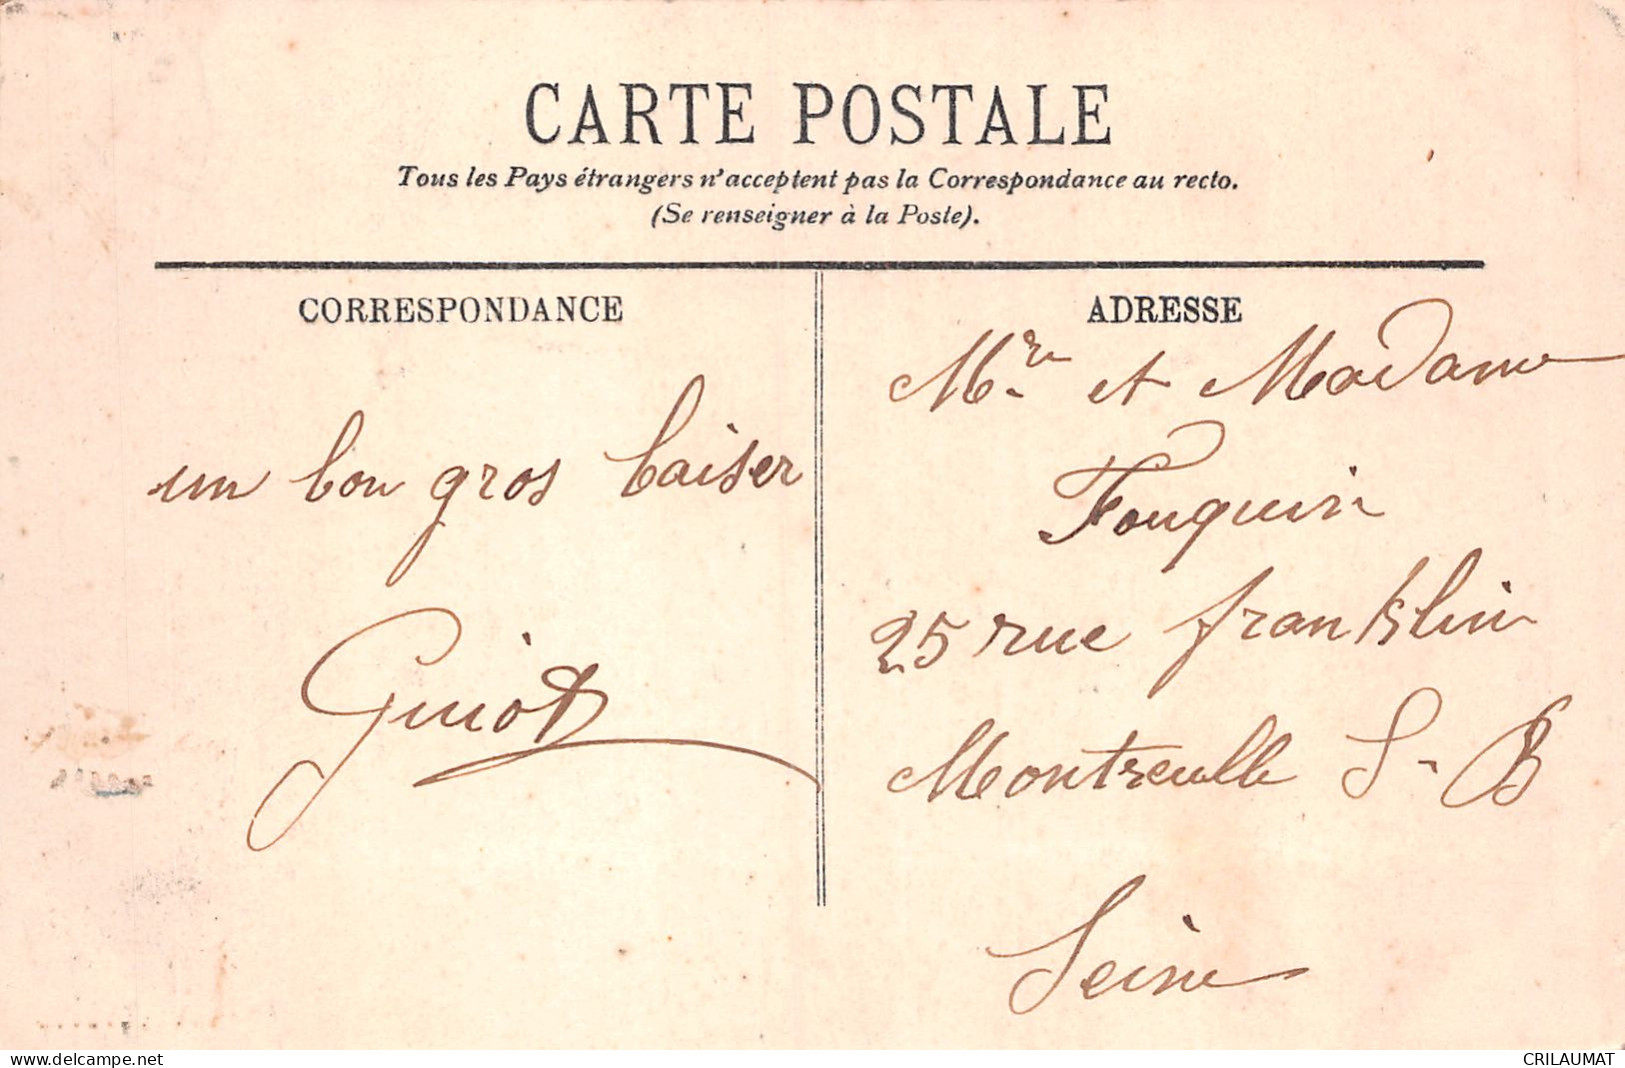 CARTE POSTALE
Tous les Pays étrangers n'acceptent pas la Correspondance au recto.
(Se renseigner à la Poste).
CORRESPONDANCE
un bon gros baiser
Guiot
ADRESSE
Mr et Madame
Fouquin
25 rue franklin
Montreuille S-B
Seine
www.delcampe.net
CRILAUMAT